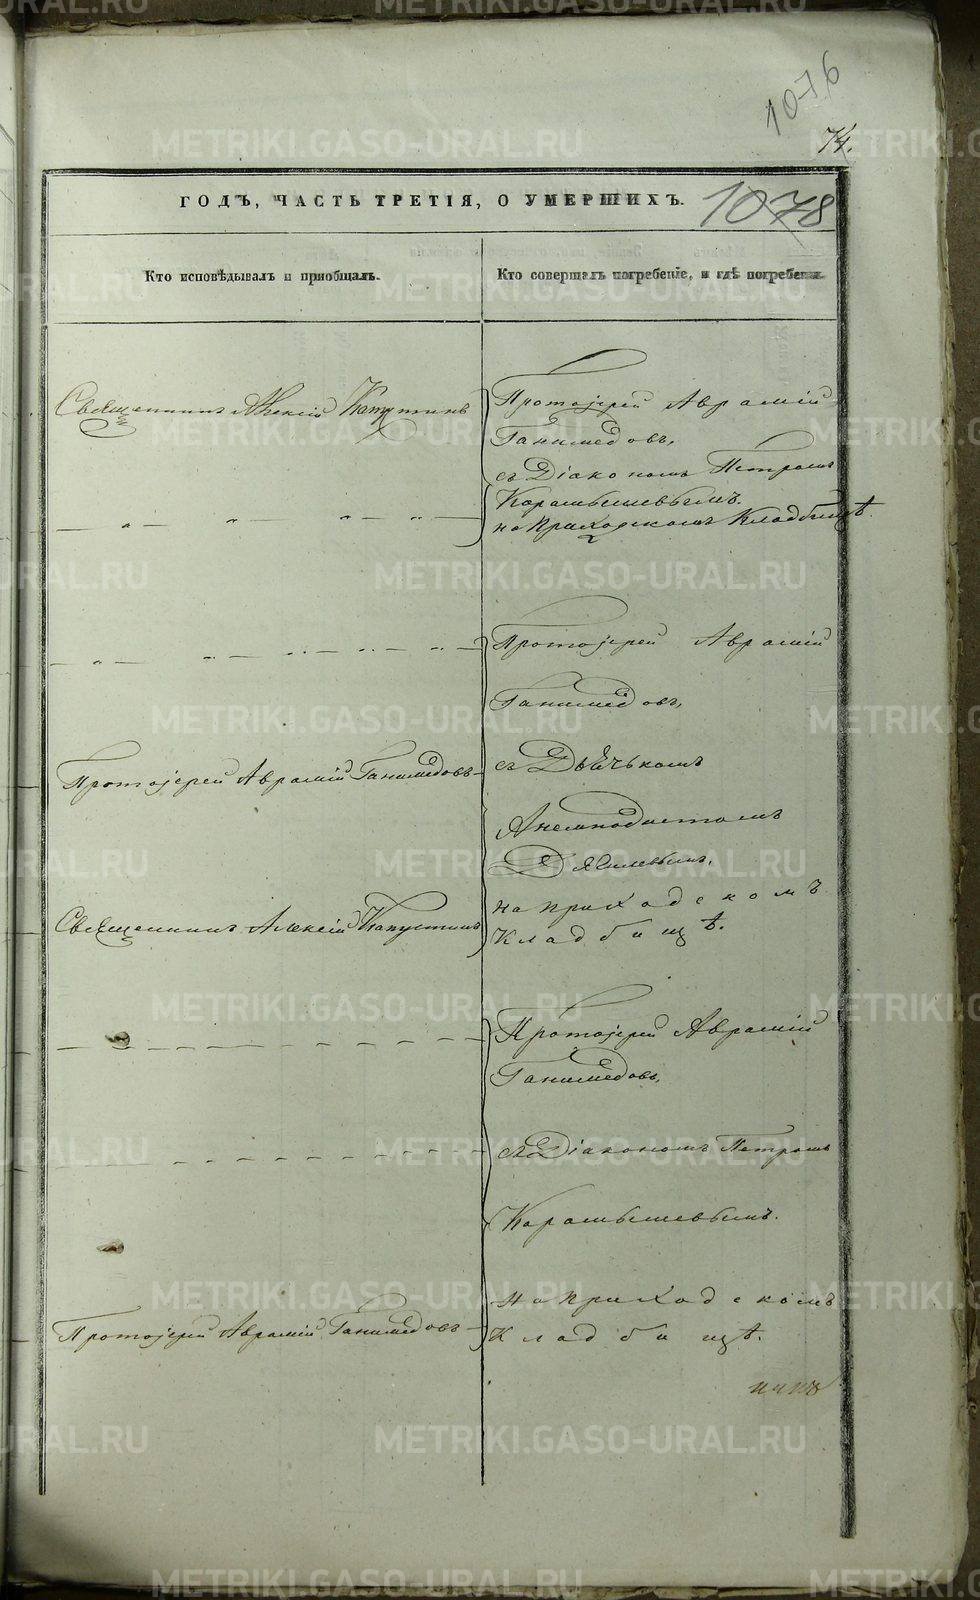 1076
74.
1078
ГОДЪ, ЧАСТЬ ТРЕТІЯ, О УМЕРШИХЪ.
Кто исповѣдывалъ и приобщалъ.
Кто совершалъ погребеніе, и гдѣ погребены.
Священникъ Алексій Капустинъ
Протоіерей Аврамій
Ганимедовъ,
съ Діакономъ Петромъ
Карамышевымъ.
на приходскомъ Кладбищѣ.
Протоіерей Аврамій
Ганимедовъ,
Протоіерей Аврамій Ганимедовъ
съ Дьячькомъ
Анемподистомъ
на приходскомъ
Священникъ Алексій Капустинъ
Кладбищѣ.
Протоіерей Аврамій
Ганимедовъ,
съ Діакономъ Петромъ
Карамышевымъ.
на приходскомъ
Протоіерей Аврамій Ганимедовъ
Кладбищѣ.
METRIKI.GASO-URAL.RU